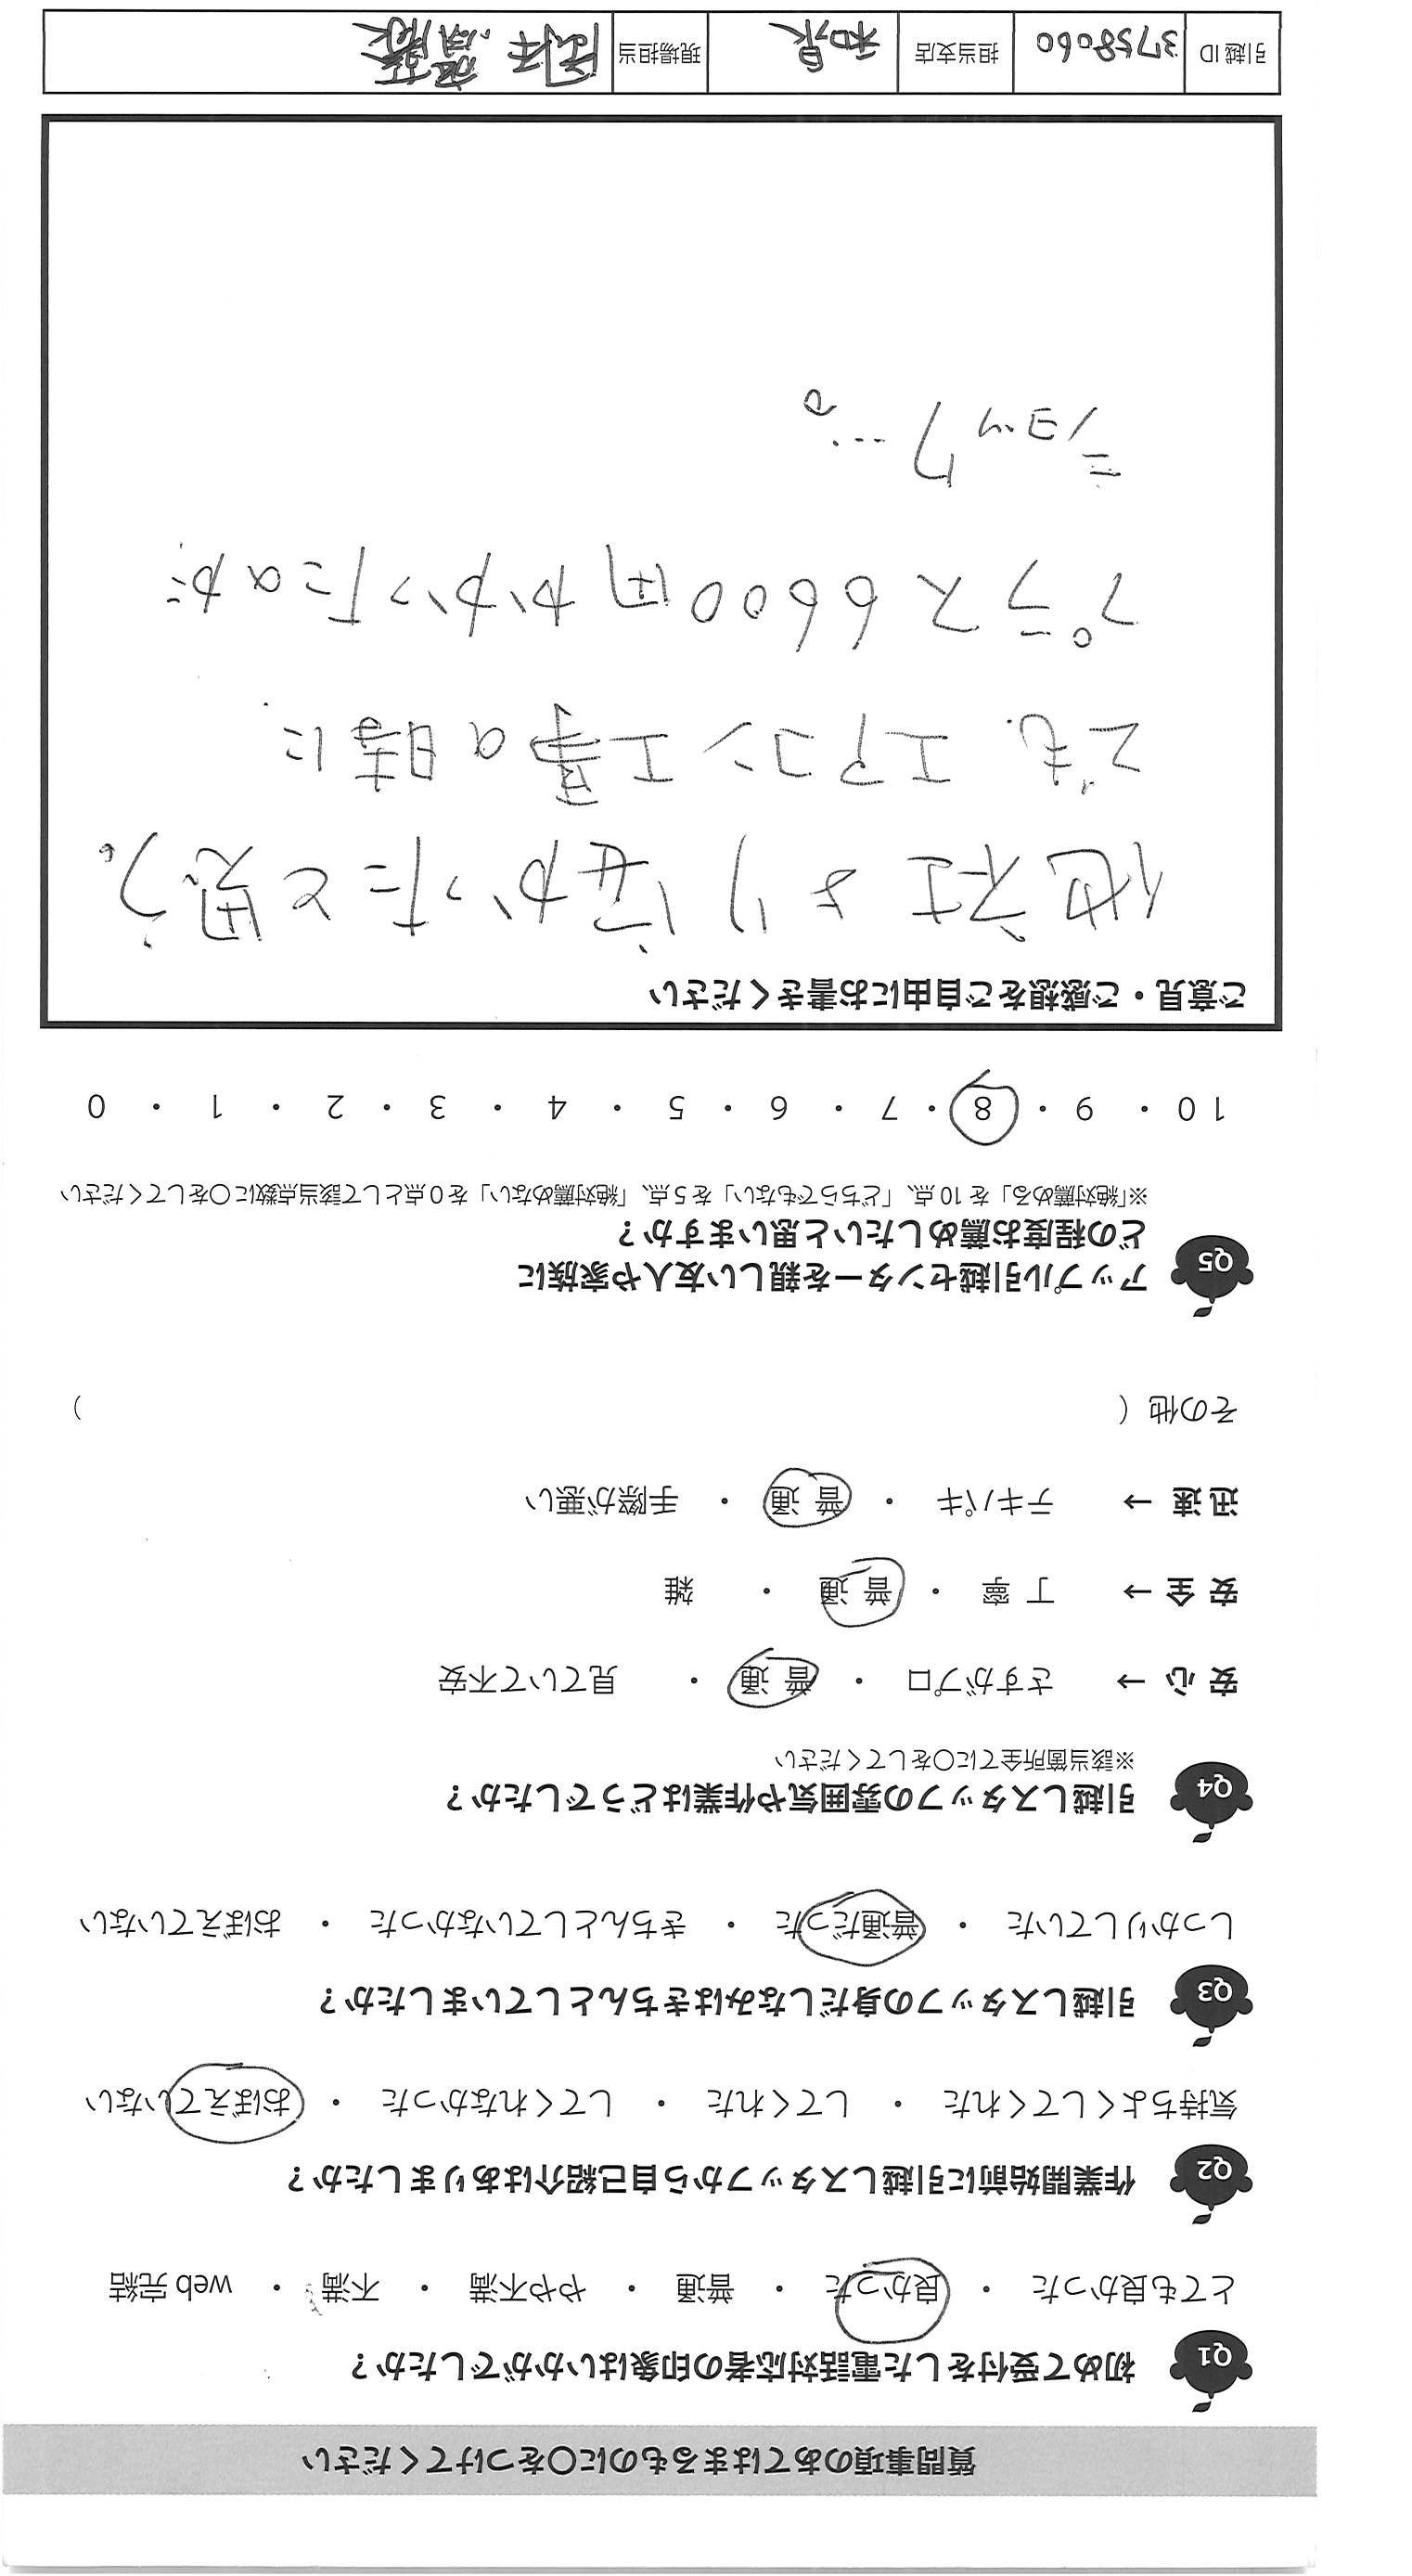 質問事項のあてはまるものに○をつけてください
Q1 初めて受付をした電話対応者の印象はいかがでしたか？
とても良かった ・ 良かった ・ 普通 ・ やや不満 ・ 不満 ・ web 完結
Q2 作業開始前に引越しスタッフから自己紹介はありましたか？
気持ちよくしてくれた ・ してくれた ・ してくれなかった ・ おぼえていない
Q3 引越しスタッフの身だしなみはきちんとしていましたか？
しっかりしていた ・ 普通だった ・ きちんとしていなかった ・ おぼえていない
Q4 引越しスタッフの雰囲気や作業はどうでしたか？
※該当箇所全てに○をしてください
安 心 → さすがプロ ・ 普 通 ・ 見ていて不安
安 全 → 丁 寧 ・ 普 通 ・ 雑
迅 速 → テキパキ ・ 普 通 ・ 手際が悪い
その他（ ）
Q5 アップル引越センターを親しい友人や家族に
どの程度お薦めしたいと思いますか？
※「絶対薦める」を 10 点、「どちらでもない」を 5 点、「絶対薦めない」を 0 点として該当点数に○をしてください
10 ・ 9 ・ 8 ・ 7 ・ 6 ・ 5 ・ 4 ・ 3 ・ 2 ・ 1 ・ 0
ご意見・ご感想をご自由にお書きください
他社より安かったと思う。
でも、エアコン工事の時に
プラス6600円かかったのが
ショック…。
引越 ID 3758060 担当支店 和泉 現場担当